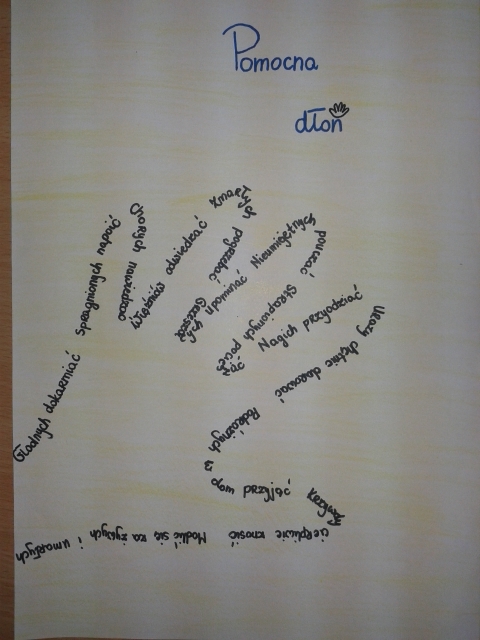 Pomocna
dłoń
Głodnych dokarmiać
spragnionych napoić
Chorych nawiedzać
Więźniów odwiedzać
zmarłych
pogrzebać
Grzeszących upominać
Nieumiejętnych
pouczać
strapionych pocieszać
Nagich przyodziać
Urazy chętnie darować
Podróżnych
w
dom przyjąć
Krzywdy
cierpliwie znosić
Modlić się za żywych i umarłych